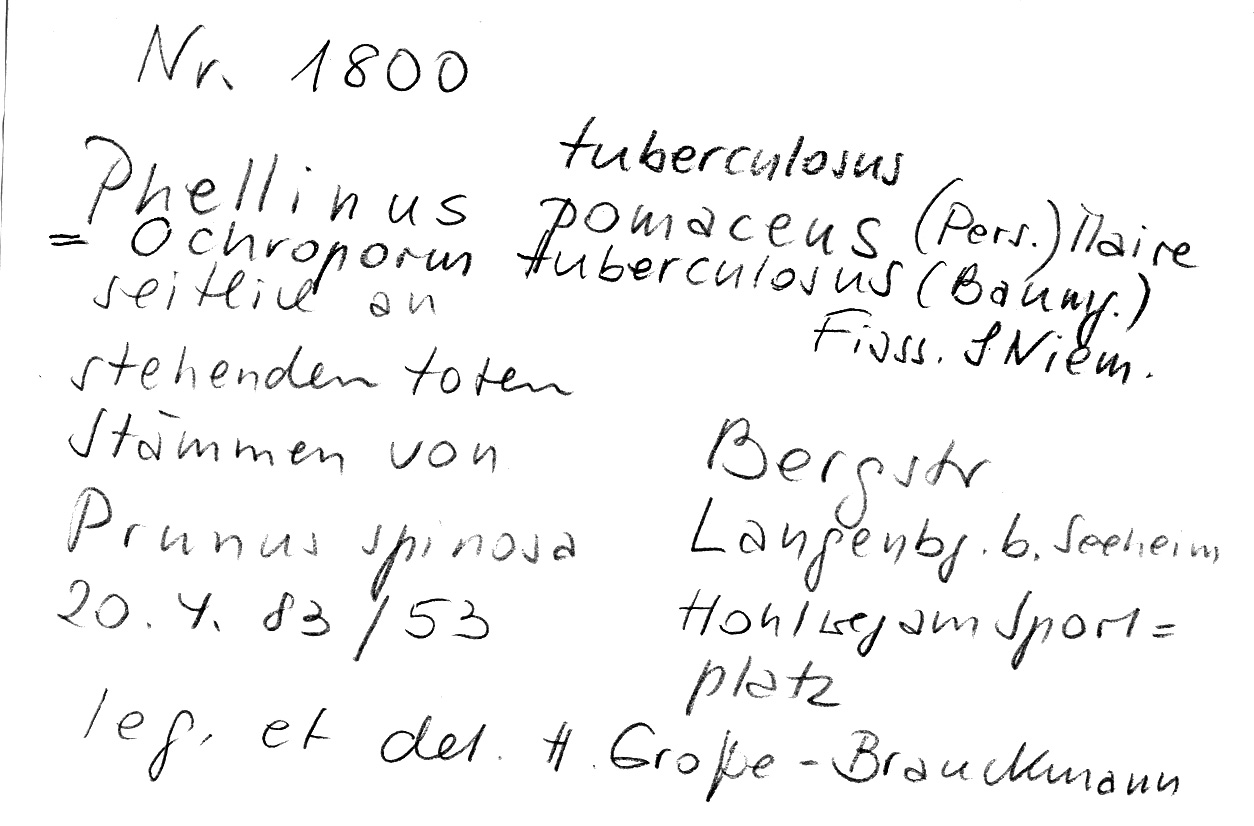 Nr. 1800
tuberculosus
Phellinus pomaceus (Pers.) Maire
= Ochroporus tuberculosus (Baumg.)
Fiass. & Niem.
seitlich an
stehenden toten
Stämmen von
Prunus spinosa
20. 4. 83 / 53
Bergstr
Langenbg. b. Seeheim
Hohlweg am Sport=
platz
leg. et det. H. Große-Brauckmann